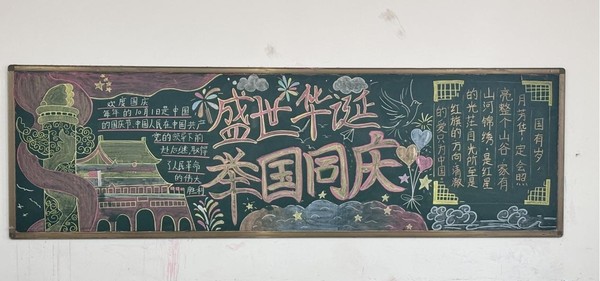 欢度国庆
每年的10月1日是中国
的国庆节,中国人民在中国共产
党的领导下前
赴后继,取得
了人民革命
的伟大
胜利
盛世华诞
举国同庆
国有岁,
月芳华,定会照
亮整个山谷,家有
山河锦绣,是红星
的光芒,目光所至是
红旗的方向,清澈
的爱,只为中国